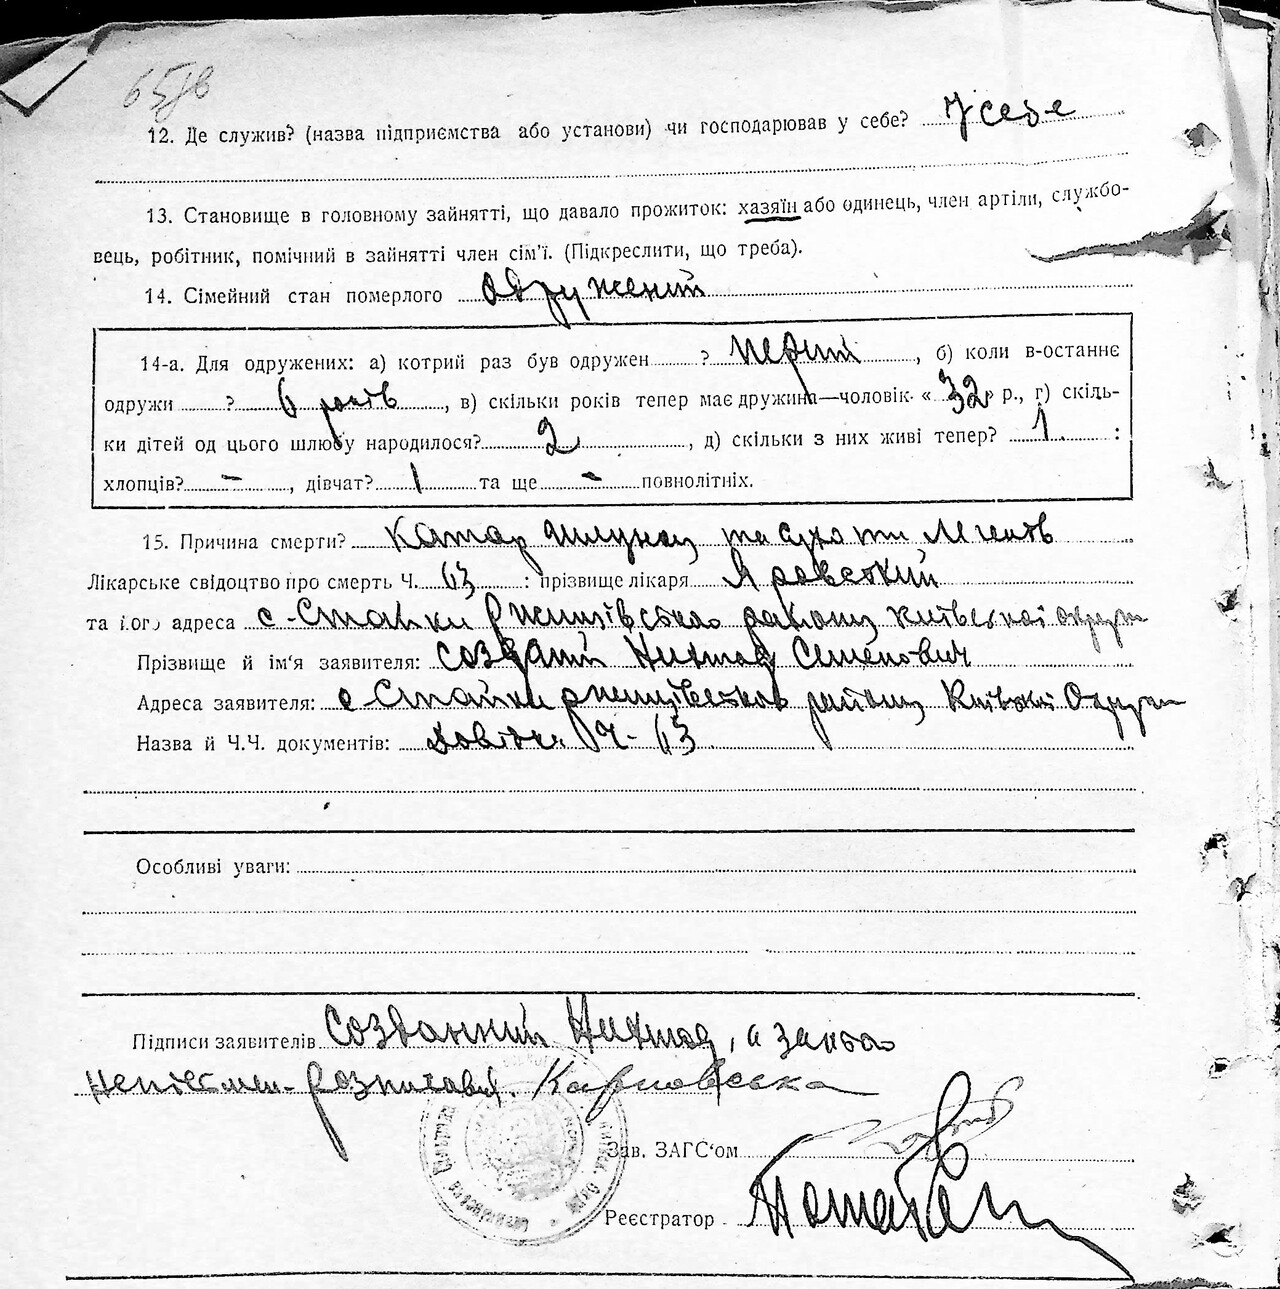 12. Де служив? (назва підприємства або установи) чи господарював у себе? У себе
13. Становище в головному зайнятті, що давало прожиток: хазяїн або одинець, член артіли, службо-
вець, робітник, помічний в зайнятті член сім'ї. (Підкреслити, що треба).
14. Сімейний стан померлого одружений
14-а. Для одружених: а) котрий раз був одружен ? перший, б) коли в-останнє
одружи ? 6 років, в) скільки років тепер має дружина—чоловік «32» р., г) скіль-
ки дітей од цього шлюбу народилося? 2, д) скільки з них живі тепер? 1 :
хлопців? -, дівчат? 1 та ще - повнолітніх.
15. Причина смерти? Катар шлунку та сухоти легенів
Лікарське свідоцтво про смерть Ч. 63 : прізвище лікаря Яровський
та його адреса с. Стайки Ржищівського району Київської округи
Прізвище й ім'я заявителя: Семенович
Адреса заявителя: с Стайки Ржищівського району Київської Округи
Назва й Ч.Ч. документів: Довідка Ч- 63
Особливі уваги:
Підписи заявителів Созванний , а за його
неписьмен. розписався.
Зав. ЗАГС'ом
Реєстратор